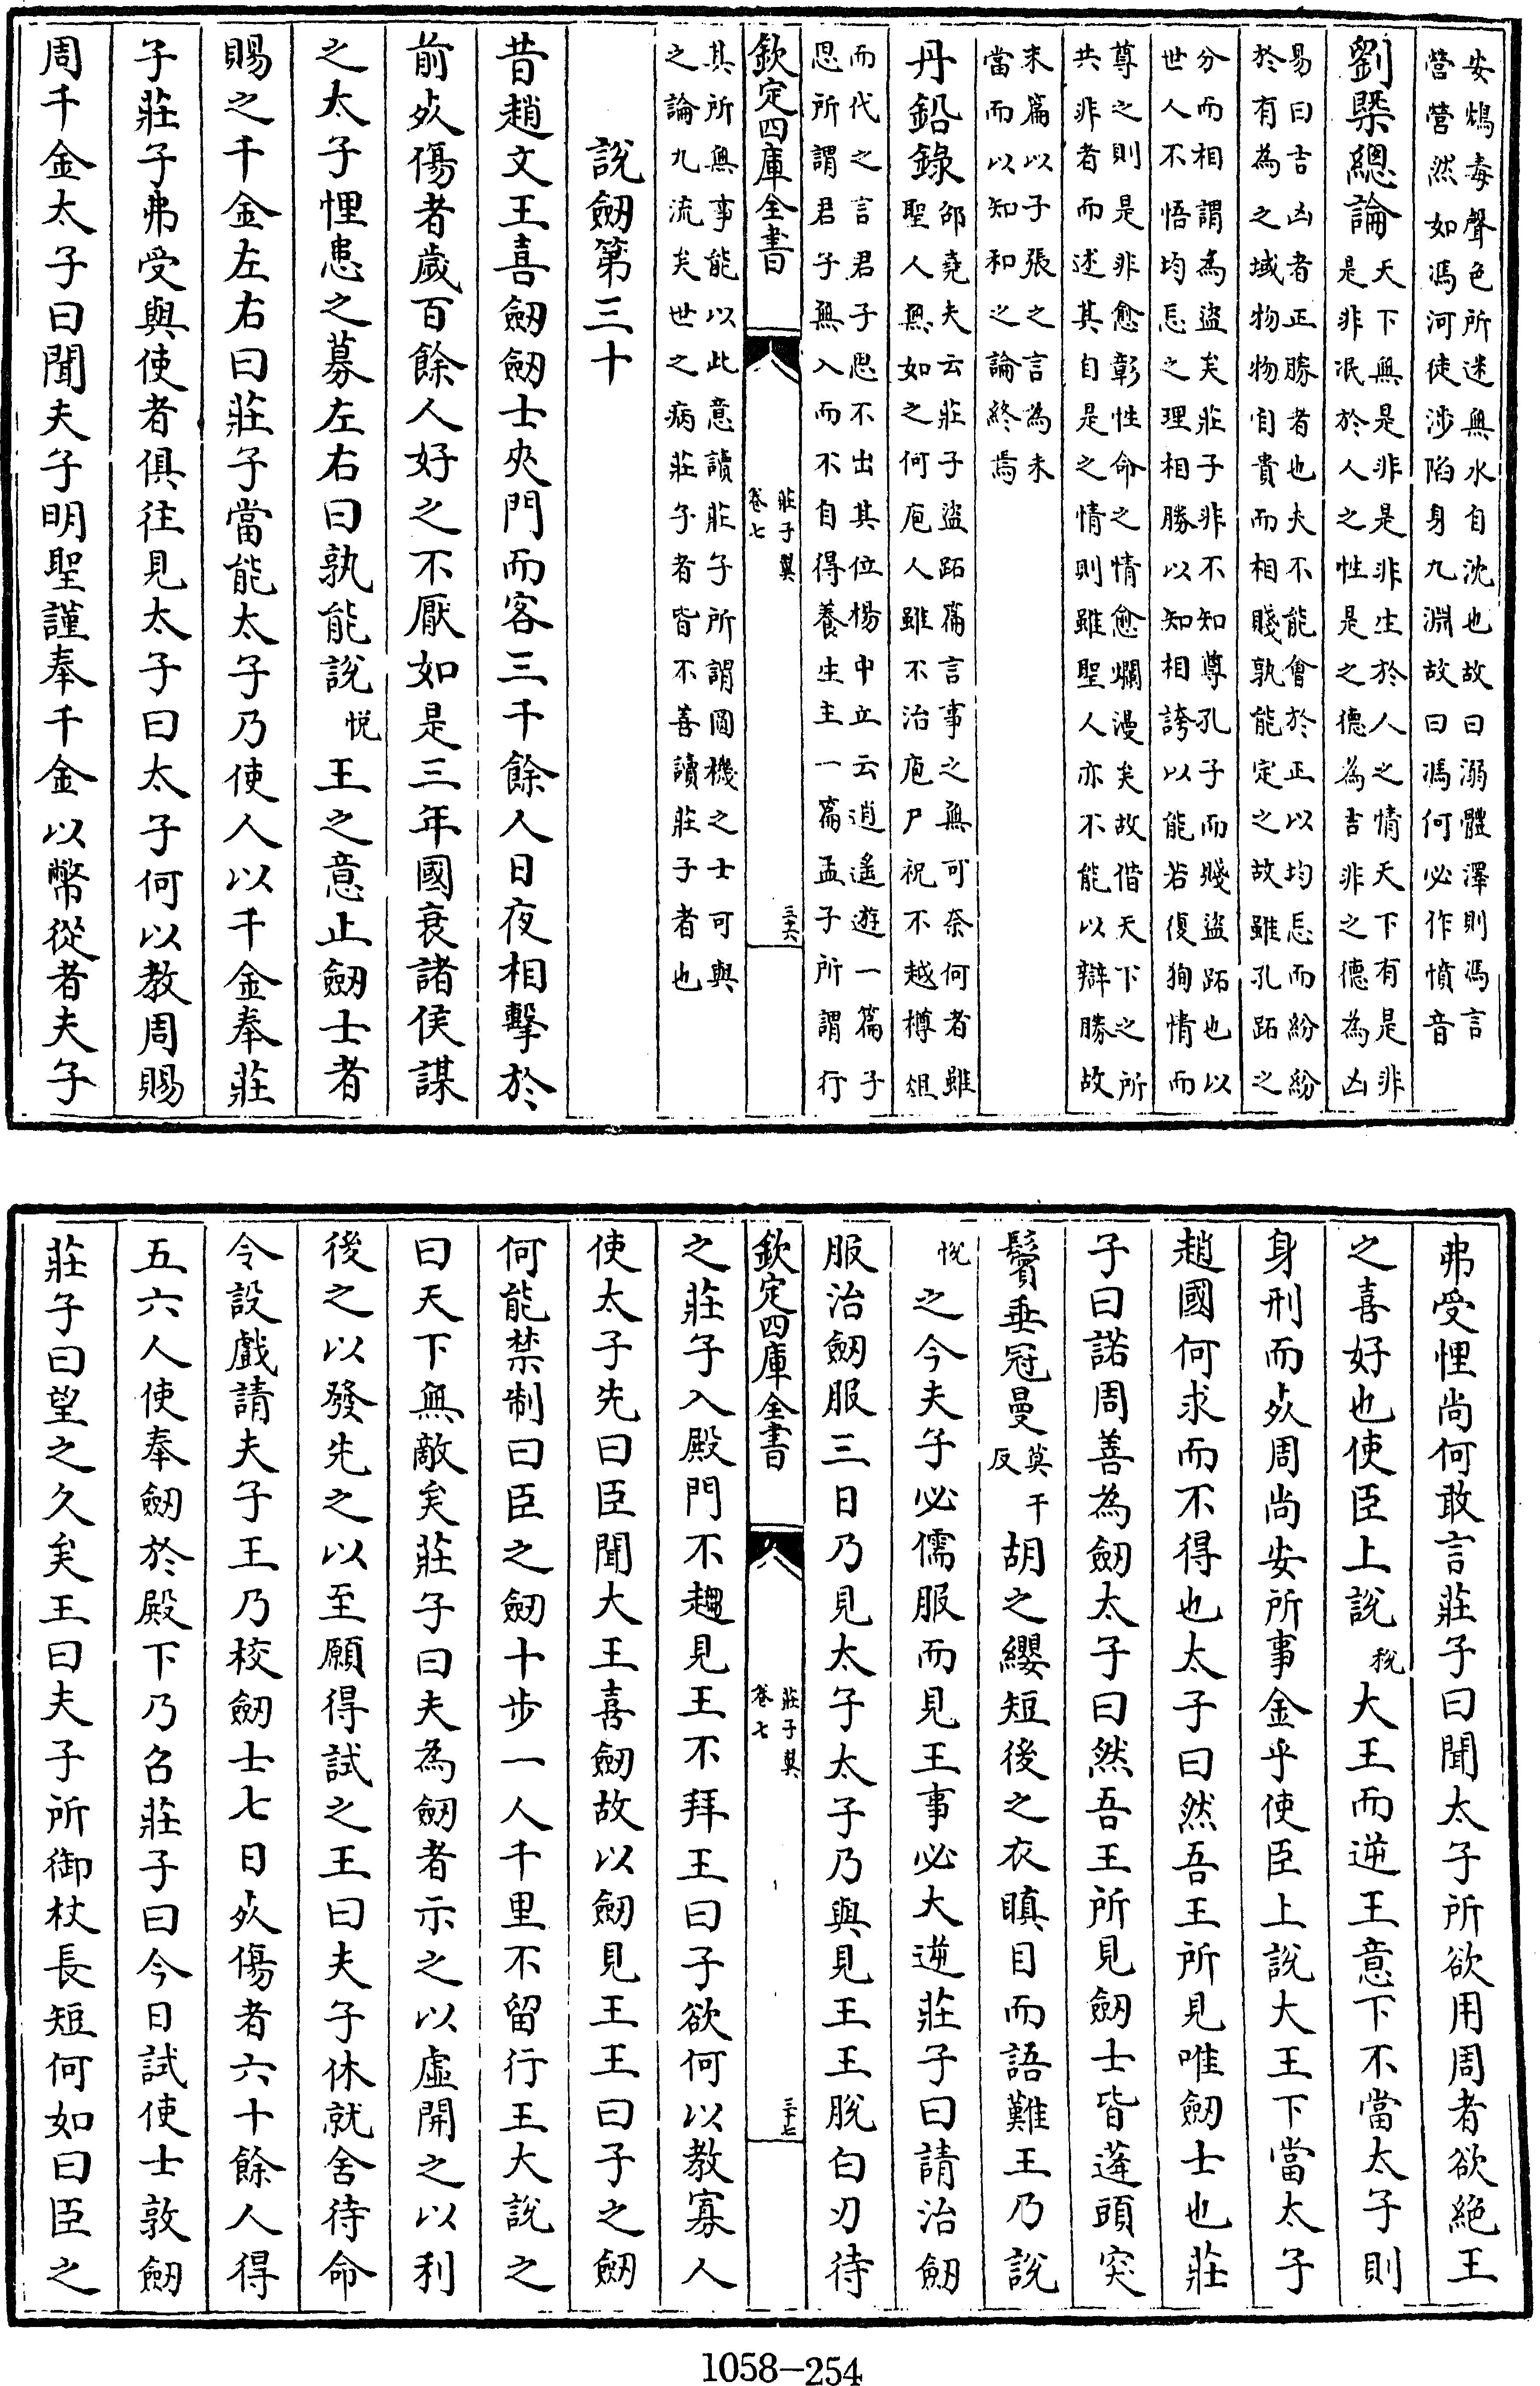 安鴆毒聲色所迷無水自沈也故曰溺體澤則馮言
營營然如馮河徒涉陷身九淵故曰馮何必作憤音
劉槩總論天下無是非是非生於人之情天下有是非
是非泯於人之性是之德為吉非之德為凶
易曰吉凶者正勝者也夫不能會於正以均忘而紛紛
於有為之域物物自貴而相賤孰能定之故雖孔跖之
分而相謂為盜矣莊子非不知尊孔子而賤盜跖也以
世人不悟均忘之理相勝以知相誇以能若復狥情而
尊之則是非愈彰性命之情愈爛漫矣故偕天下之所
共非者而述其自是之情則雖聖人亦不能以辯勝故
末篇以子張之言為未
當而以知和之論終焉
丹鉛錄邵堯夫云莊子盜跖篇言事之無可奈何者雖
聖人無如之何庖人雖不治庖尸祝不越樽俎
而代之言君子思不出其位楊中立云逍遙遊一篇子
思所謂君子無入而不自得養生主一篇孟子所謂行
欽定四庫全書
莊子翼
卷七
三六
其所無事能以此意讀莊子所謂圓機之士可與
之論九流矣世之病莊子者皆不善讀莊子者也
說劒第三十
昔趙文王喜劒劒士夾門而客三千餘人日夜相擊於
前死傷者歲百餘人好之不厭如是三年國衰諸侯謀
之太子悝患之募左右曰孰能說悅王之意止劒士者
賜之千金左右曰莊子當能太子乃使人以千金奉莊
子莊子弗受與使者俱往見太子曰太子何以教周賜
周千金太子曰聞夫子明聖謹奉千金以幣從者夫子
弗受悝尚何敢言莊子曰聞太子所欲用周者欲絕王
之喜好也使臣上說稅大王而逆王意下不當太子則
身刑而死周尚安所事金乎使臣上說大王下當太子
趙國何求而不得也太子曰然吾王所見唯劒士也莊
子曰諾周善為劒太子曰然吾王所見劒士皆蓬頭突
鬢垂冠曼莫干反胡之纓短後之衣瞋目而語難王乃說
悅之今夫子必儒服而見王事必大逆莊子曰請治劒
服治劒服三日乃見太子太子乃與見王王脫白刃待
欽定四庫全書
莊子翼
卷七
三七
之莊子入殿門不趨見王不拜王曰子欲何以教寡人
使太子先曰臣聞大王喜劒故以劒見王王曰子之劒
何能禁制曰臣之劒十步一人千里不留行王大說之
曰天下無敵矣莊子曰夫為劒者示之以虛開之以利
後之以發先之以至願得試之王曰夫子休就舍待命
令設戲請夫子王乃校劒士七日死傷者六十餘人得
五六人使奉劒於殿下乃召莊子曰今日試使士敦劒
莊子曰望之久矣王曰夫子所御杖長短何如曰臣之
1058-254